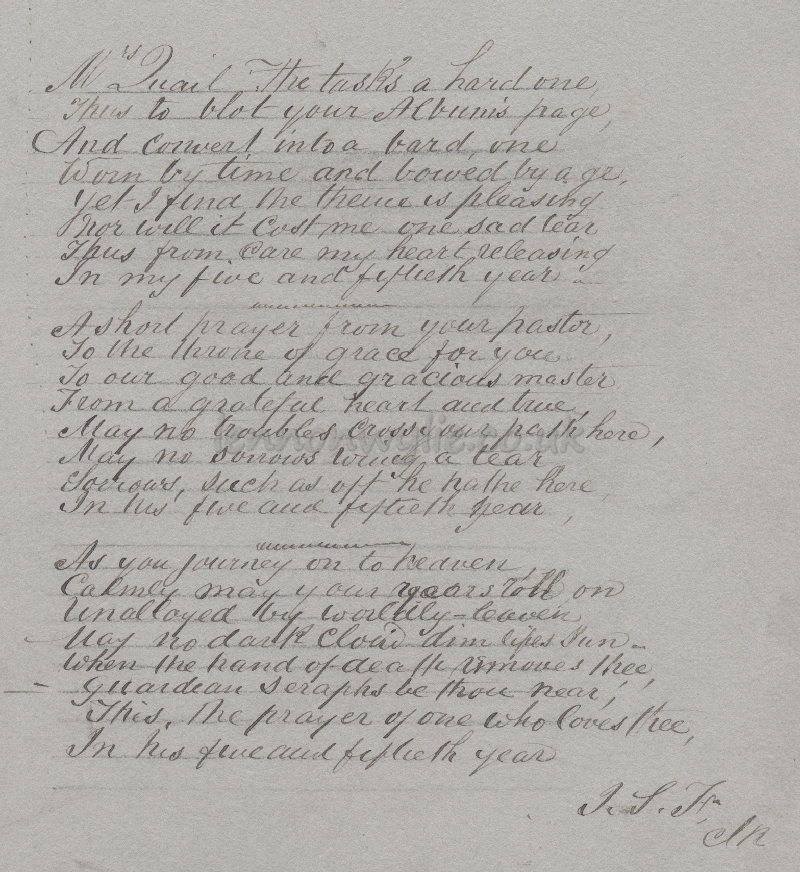 Mrs Quail, The task's a hard one,
Thus to blot your Album's page,
And convert into a bard, one
Worn by time and bowed by age,
Yet I find the theme is pleasing
Nor will it cost me one sad tear
Thus from care my heart releasing
In my five and fiftieth year.
A short prayer from your pastor,
To the throne of grace for you
To our good and gracious master
From a grateful heart and true,
May no troubles cross your path here,
May no sorrows wring a tear
Sorrows, such as oft he hathe here
In his five and fiftieth year,
As you journey on to heaven,
Calmly may your years roll on
Unalloyed by worldly-leaven
May no dark cloud dim lifes sun
When the hand of death removes thee,
Guardian seraphs be thou near,
This, the prayer of one who loves thee,
In his five and fiftieth year
J. S. F.